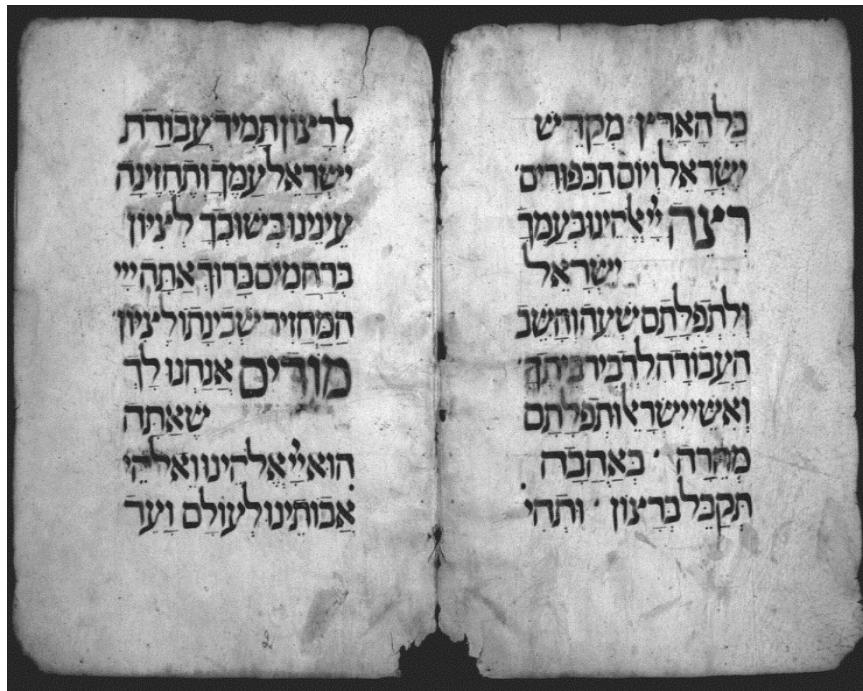 כָּל הָאָרֶץ מְקַדֵּישׁ
יִשְׂרָאֵל וְיוֹם הַכִּפּוּרִים
רְצֵה יְיָ אֱלֹהֵינוּ בְּעַמְּךָ
יִשְׂרָאֵל
וְלִתְפִלָּתָם שְׁעֵה וְהָשֵׁב
הָעֲבוֹדָה לִדְבִיר בֵּיתֶךָ
וְאִשֵּׁי יִשְׂרָאֵל וּתְפִלָּתָם
מְהֵרָה בְּאַהֲבָה
תְּקַבֵּל בְּרָצוֹן וּתְהִי
לְרָצוֹן תָּמִיד עֲבוֹדַת
יִשְׂרָאֵל עַמֶּךָ וְתֶחֱזֶינָה
עֵינֵינוּ בְּשׁוּבְךָ לְצִיּוֹן
בְּרַחֲמִים בָּרוּךְ אַתָּה יְיָ
הַמַּחֲזִיר שְׁכִינָתוֹ לְצִיּוֹן
מוֹדִים אֲנַחְנוּ לָךְ
שֶׁאַתָּה
הוּא יְיָ אֱלֹהֵינוּ וֵאלֹהֵי
אֲבוֹתֵינוּ לְעוֹלָם וָעֶד